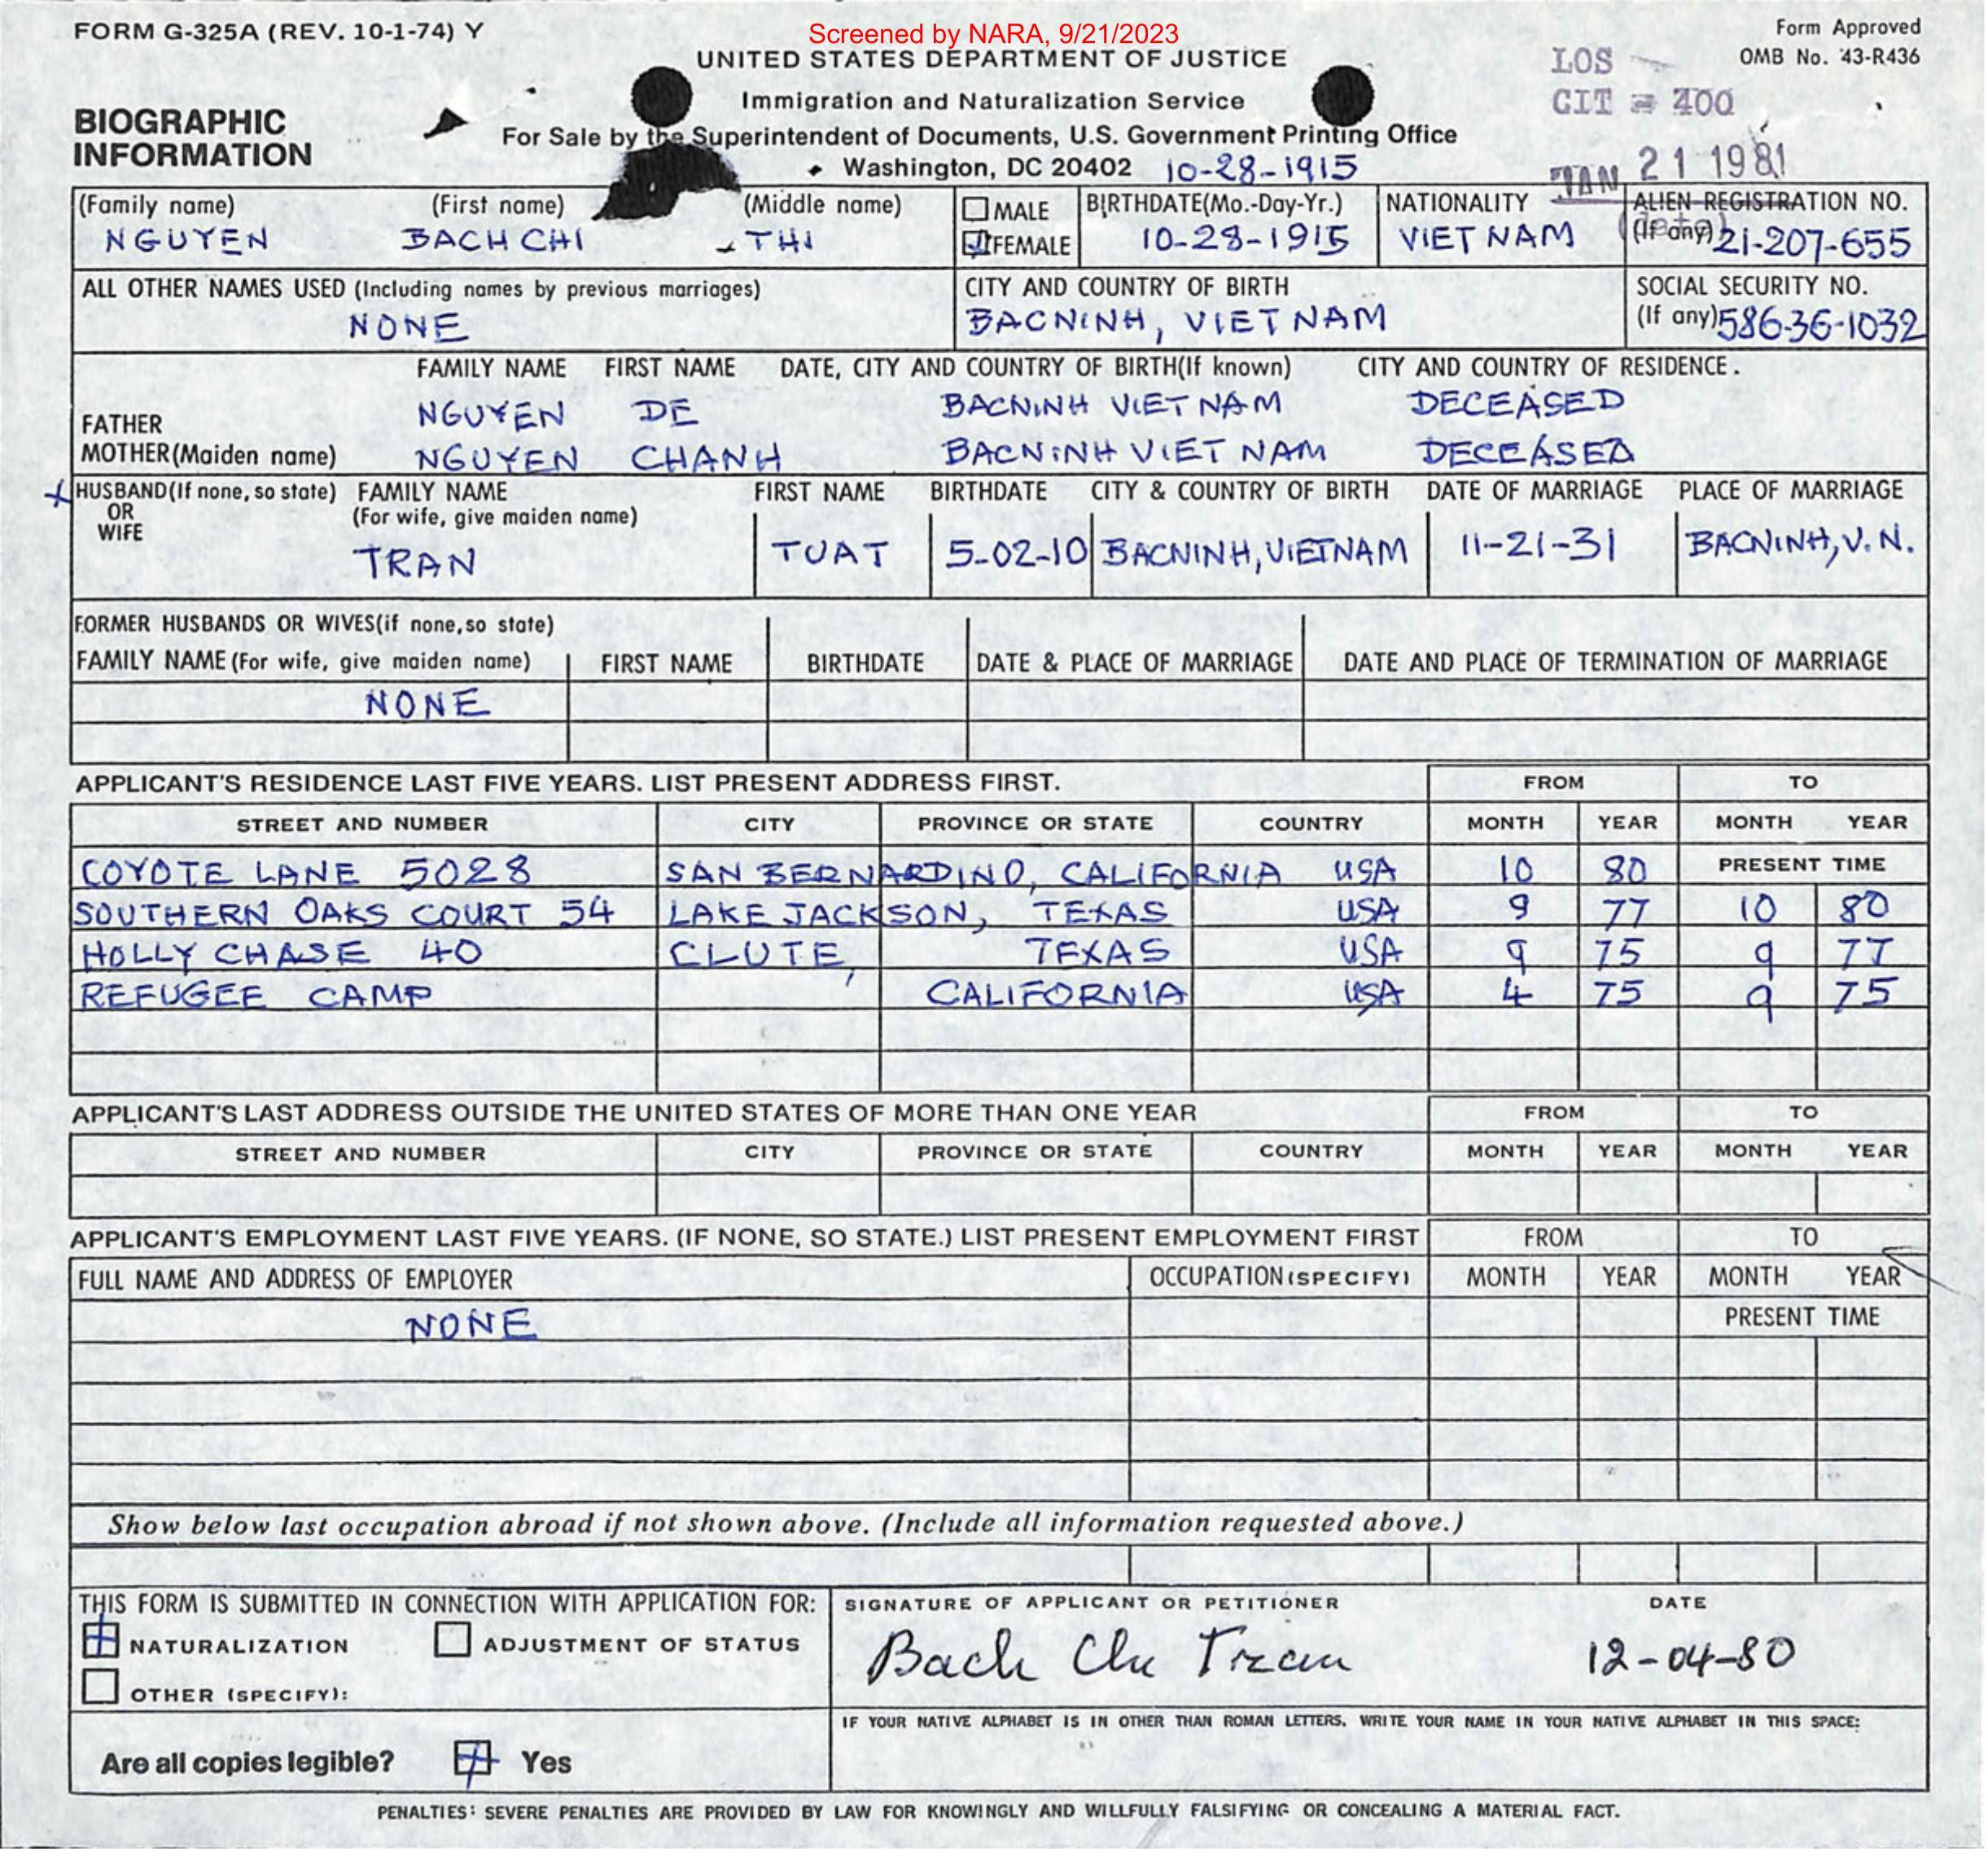 FORM G-325A (REV. 10-1-74) Y
Screened by NARA, 9/21/2023
Form Approved
OMB No. 43-R436
UNITED STATES DEPARTMENT OF JUSTICE
LOS
CIT = 400
Immigration and Naturalization Service
BIOGRAPHIC
INFORMATION
For Sale by the Superintendent of Documents, U.S. Government Printing Office
Washington, DC 20402 10-28-1915
JAN 21 1981
(Family name) (First name) (Middle name) MALE BIRTHDATE(Mo.-Day-Yr.) NATIONALITY ALIEN REGISTRATION NO.
NGUYEN BACH CHI THI FEMALE 10-28-1915 VIET NAM (If any) 21-207-655
ALL OTHER NAMES USED (Including names by previous marriages) CITY AND COUNTRY OF BIRTH SOCIAL SECURITY NO.
NONE BACNINH, VIET NAM (If any) 586-36-1032
FAMILY NAME FIRST NAME DATE, CITY AND COUNTRY OF BIRTH(If known) CITY AND COUNTRY OF RESIDENCE.
FATHER NGUYEN DE BACNINH VIET NAM DECEASED
MOTHER(Maiden name) NGUYEN CHANH BACNINH VIET NAM DECEASED
HUSBAND(If none, so state) FAMILY NAME FIRST NAME BIRTHDATE CITY & COUNTRY OF BIRTH DATE OF MARRIAGE PLACE OF MARRIAGE
OR (For wife, give maiden name)
WIFE
TRAN TUAT 5-02-10 BACNINH, VIETNAM 11-21-31 BACNINH, V.N.
FORMER HUSBANDS OR WIVES(if none,so state)
FAMILY NAME (For wife, give maiden name) FIRST NAME BIRTHDATE DATE & PLACE OF MARRIAGE DATE AND PLACE OF TERMINATION OF MARRIAGE
NONE
APPLICANT'S RESIDENCE LAST FIVE YEARS. LIST PRESENT ADDRESS FIRST. FROM TO
STREET AND NUMBER CITY PROVINCE OR STATE COUNTRY MONTH YEAR MONTH YEAR
COYOTE LANE 5028 SAN BERNARDINO, CALIFORNIA USA 10 80 PRESENT TIME
SOUTHERN OAKS COURT 54 LAKE JACKSON, TEXAS USA 9 77 10 80
HOLLY CHASE 40 CLUTE, TEXAS USA 9 75 9 77
REFUGEE CAMP CALIFORNIA USA 4 75 9 75
APPLICANT'S LAST ADDRESS OUTSIDE THE UNITED STATES OF MORE THAN ONE YEAR FROM TO
STREET AND NUMBER CITY PROVINCE OR STATE COUNTRY MONTH YEAR MONTH YEAR
APPLICANT'S EMPLOYMENT LAST FIVE YEARS. (IF NONE, SO STATE.) LIST PRESENT EMPLOYMENT FIRST FROM TO
FULL NAME AND ADDRESS OF EMPLOYER OCCUPATION (SPECIFY) MONTH YEAR MONTH YEAR
NONE PRESENT TIME
Show below last occupation abroad if not shown above. (Include all information requested above.)
THIS FORM IS SUBMITTED IN CONNECTION WITH APPLICATION FOR: SIGNATURE OF APPLICANT OR PETITIONER DATE
NATURALIZATION ADJUSTMENT OF STATUS Bach Chi Tran 12-04-80
OTHER (SPECIFY):
IF YOUR NATIVE ALPHABET IS IN OTHER THAN ROMAN LETTERS, WRITE YOUR NAME IN YOUR NATIVE ALPHABET IN THIS SPACE:
Are all copies legible? Yes
PENALTIES: SEVERE PENALTIES ARE PROVIDED BY LAW FOR KNOWINGLY AND WILLFULLY FALSIFYING OR CONCEALING A MATERIAL FACT.